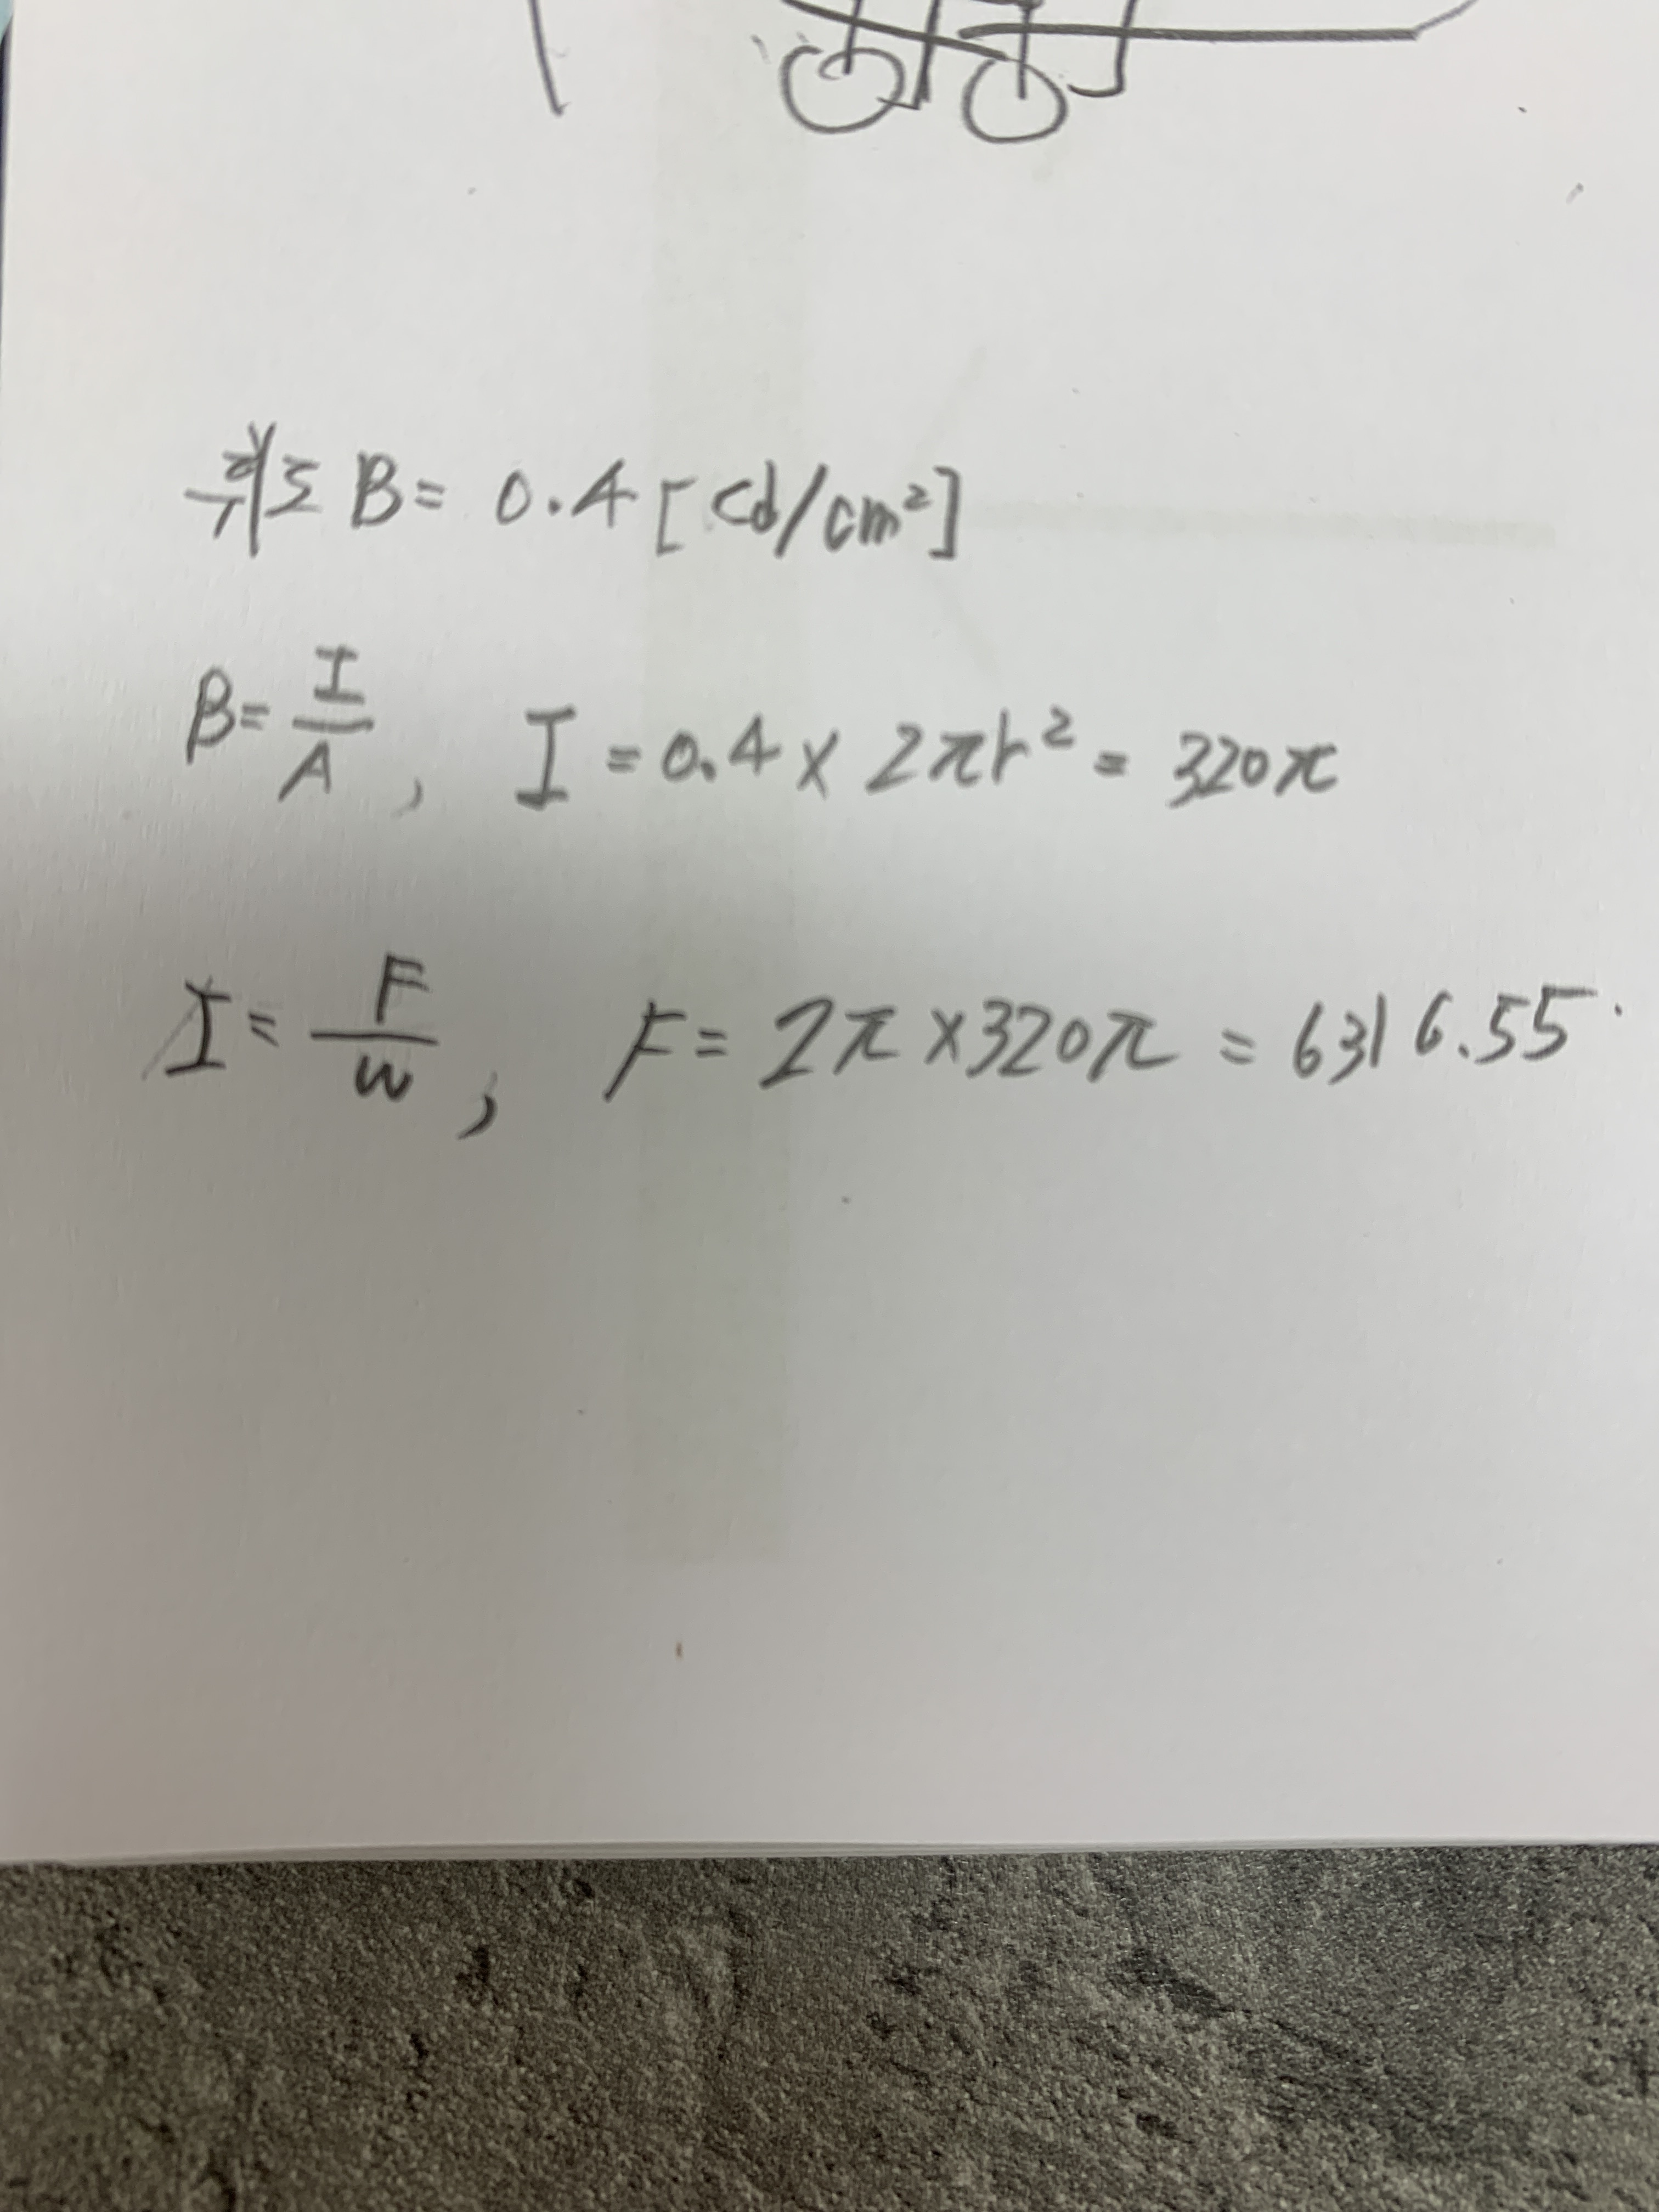 휘도 B = 0.4 [cd/cm²]
B = I/A , I = 0.4 × 2πr² = 320π
I = F/w , F = 2π × 320π = 6316.55